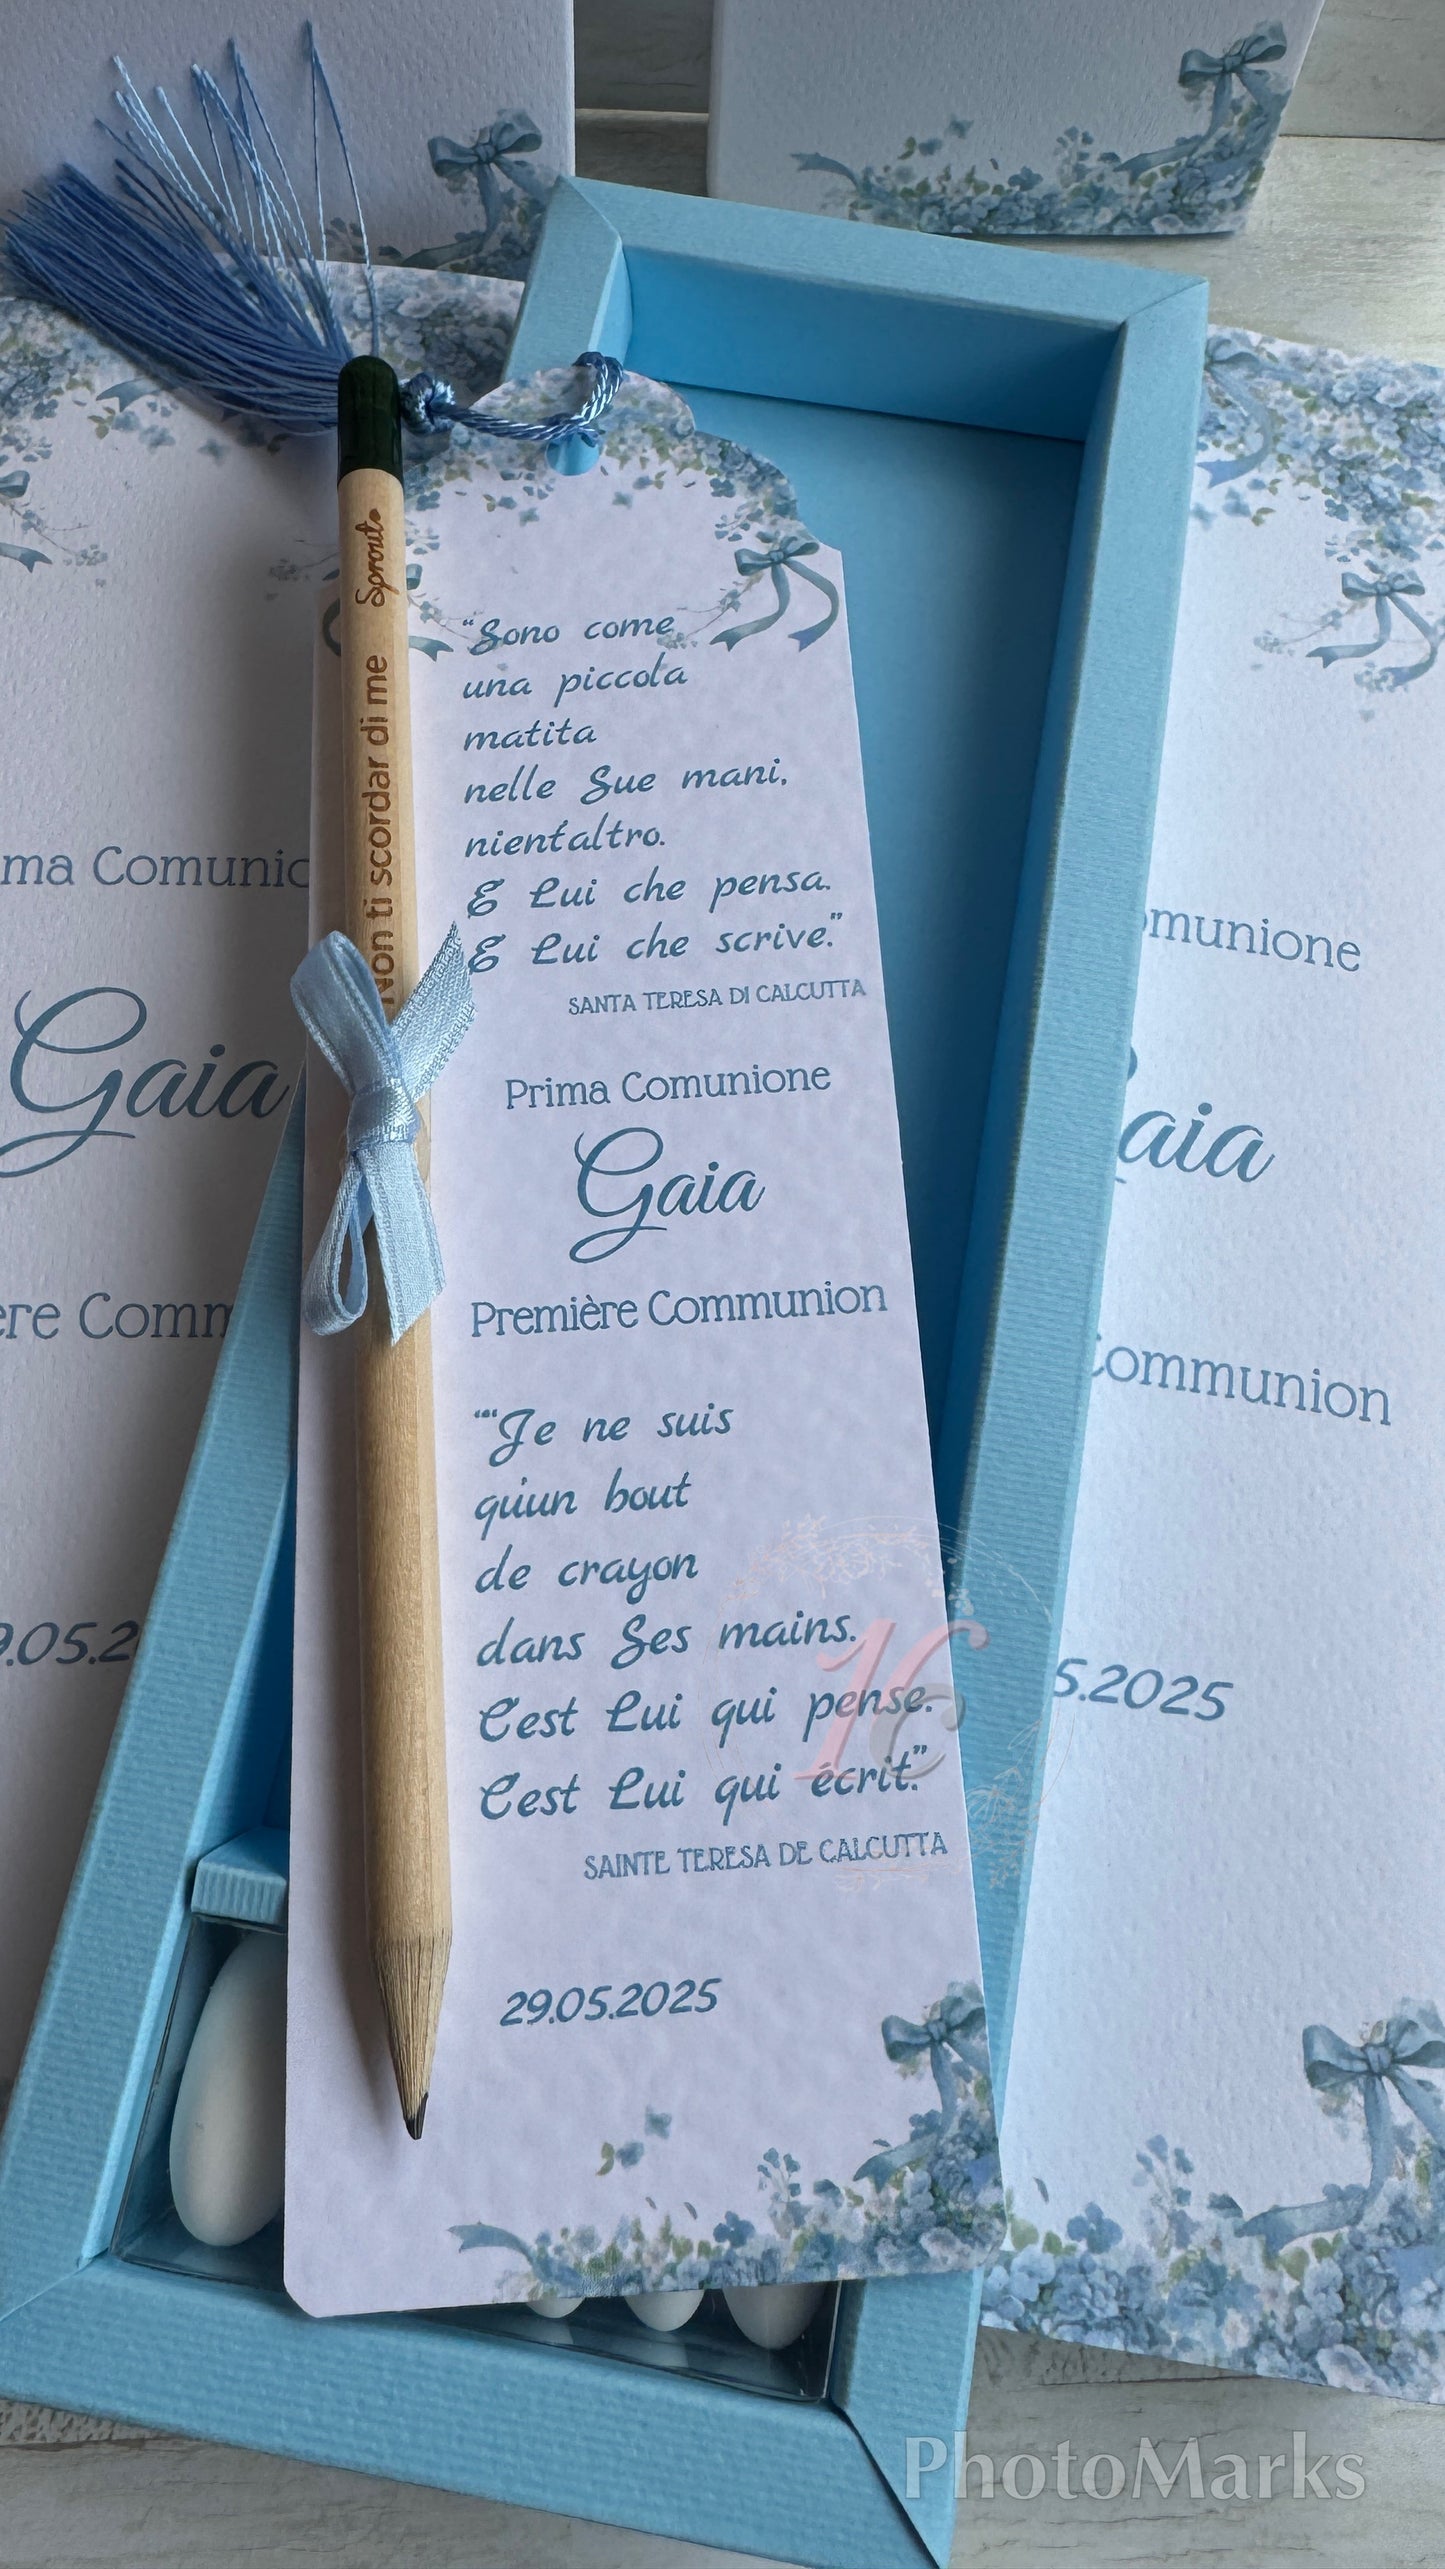 Sprout
Non ti scordar di me
"Sono come
una piccola
matita
nelle Sue mani,
nient'altro.
È Lui che pensa.
È Lui che scrive."
SANTA TERESA DI CALCUTTA
Prima Comunione
Gaia
Première Communion
""Je ne suis
qu'un bout
de crayon
dans Ses mains.
C'est Lui qui pense.
C'est Lui qui écrit."
SAINTE TERESA DE CALCUTTA
29.05.2025
ma Comunio
Gaia
ère Comm
9.05.2
omunione
aia
Communion
5.2025
PhotoMarks